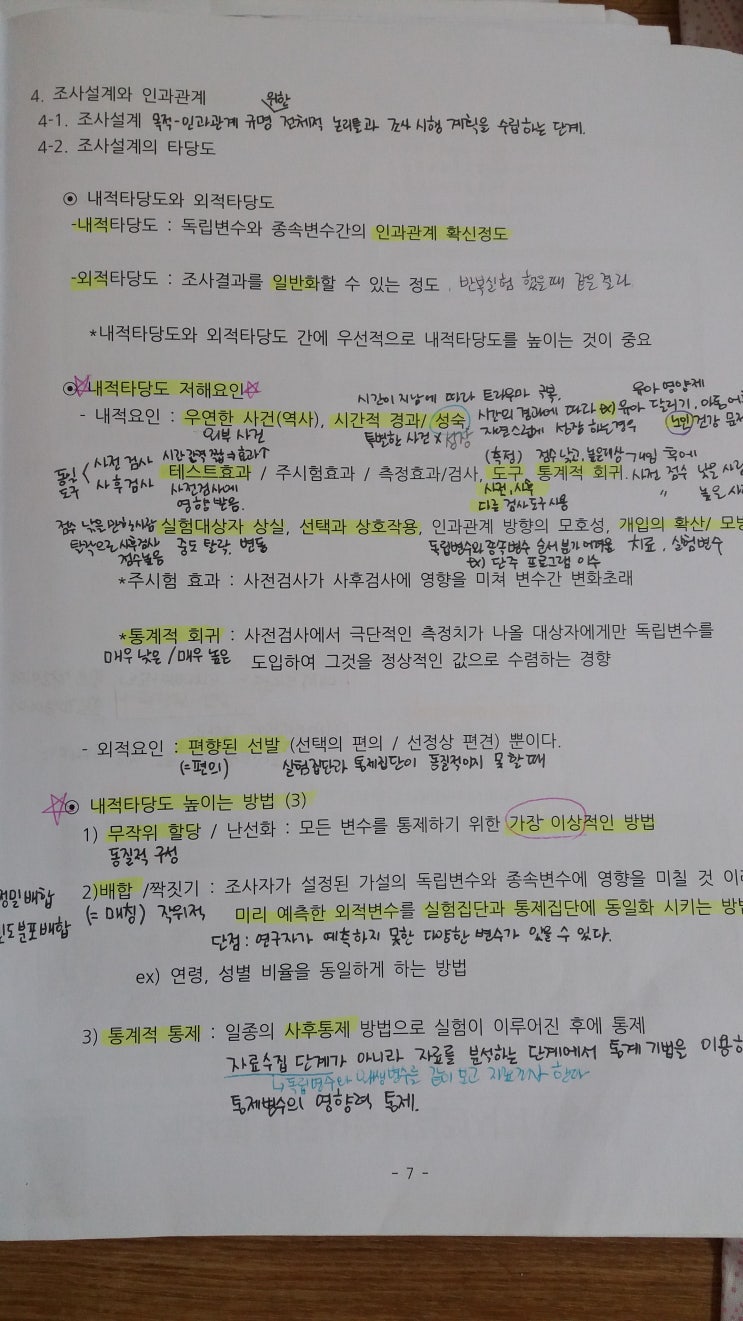 4. 조사설계와 인과관계
위한
4-1. 조사설계 목적-인과관계 규명 전체적 논리틀과 조사 시행 계획을 수립하는 단계.
4-2. 조사설계의 타당도
⊙ 내적타당도와 외적타당도
-내적타당도 : 독립변수와 종속변수간의 인과관계 확신정도
-외적타당도 : 조사결과를 일반화할 수 있는 정도. 반복실험 했을때 같은결과
*내적타당도와 외적타당도 간에 우선적으로 내적타당도를 높이는 것이 중요
⊙ 내적타당도 저해요인
시간이 지남에 따라 트라우마 극복. 유아 영양제
- 내적요인 : 우연한 사건(역사), 시간적 경과/ 성숙 시간의 경과에 따라 ex) 유아 달리기, 아동
외부 사건 특별한 사건 X 성장 자연스럽게 성장 하는경우 노인 건강 문제
동일 도구 < 사전 검사 시간 간격 짧 ⇒ 효과↑ (측정) 점수 낮고, 높은대상
사후 검사 테스트효과 / 주시험효과 / 측정효과/검사, 도구 통계적 회귀. 사전 점수 낮은
사전검사에 사전, 사후 〃 높은
영향 받음. 다른 검사도구 사용
점수 낮은 실험대상자 상실, 선택과 상호작용, 인과관계 방향의 모호성, 개입의 확산/ 모방
탈락으로 사후검사 중도 탈락, 변동 독립변수와 종속변수 순서 분간 어려움 치료, 실험변수
점수높음 ex) 단주 프로그램 이수
*주시험 효과 : 사전검사가 사후검사에 영향을 미쳐 변수간 변화초래
*통계적 회귀 : 사전검사에서 극단적인 측정치가 나올 대상자에게만 독립변수를
매우 낮은 / 매우 높은 도입하여 그것을 정상적인 값으로 수렴하는 경향
- 외적요인 : 편향된 선발 (선택의 편의 / 선정상 편견) 뿐이다.
(=편의) 실험집단과 통제집단이 동질적이지 못할때
⊙ 내적타당도 높이는 방법 (3)
1) 무작위 할당 / 난선화 : 모든 변수를 통제하기 위한 가장 이상적인 방법
동질적 구성
정밀배합 2)배합 /짝짓기 : 조사자가 설정된 가설의 독립변수와 종속변수에 영향을 미칠 것
빈도분포배합 (= 매칭) 작위적 미리 예측한 외적변수를 실험집단과 통제집단에 동일화 시키는 방법
단점 : 연구자가 예측하지 못한 다양한 변수가 있을 수 있다.
ex) 연령, 성별 비율을 동일하게 하는 방법
3) 통계적 통제 : 일종의 사후통제 방법으로 실험이 이루어진 후에 통제
자료수집 단계가 아니라 자료를 분석하는 단계에서 통계 기법을 이용
↳독립변수와 외생변수를 같이 보고 한다
통제변수의 영향력 통제.
- 7 -